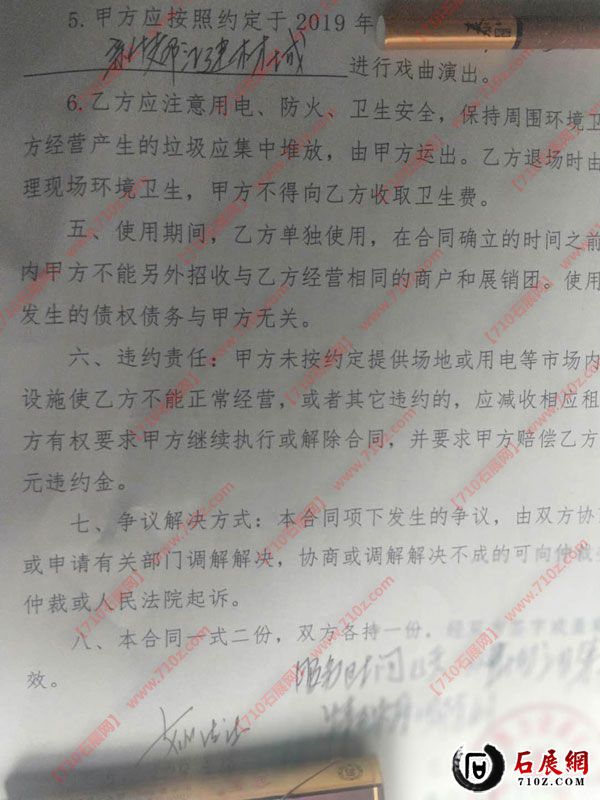 5.甲方应按照约定于2019年
进行戏曲演出。
6.乙方应注意用电、防火、卫生安全，保持周围环境卫
方经营产生的垃圾应集中堆放，由甲方运出。乙方退场时由
理现场环境卫生，甲方不得向乙方收取卫生费。
五、使用期间，乙方单独使用，在合同确立的时间之前
内甲方不能另外招收与乙方经营相同的商户和展销团。使用
发生的债权债务与甲方无关。
六、违约责任：甲方未按约定提供场地或用电等市场内
设施使乙方不能正常经营，或者其它违约的，应减收相应租
方有权要求甲方继续执行或解除合同，并要求甲方赔偿乙方
元违约金。
七、争议解决方式：本合同项下发生的争议，由双方协
或申请有关部门调解解决，协商或调解解决不成的可向仲裁
仲裁或人民法院起诉。
八、本合同一式二份，双方各持一份，经双方签字或盖
效。
【710石展网】www.710z.com
石展網
710Z.COM